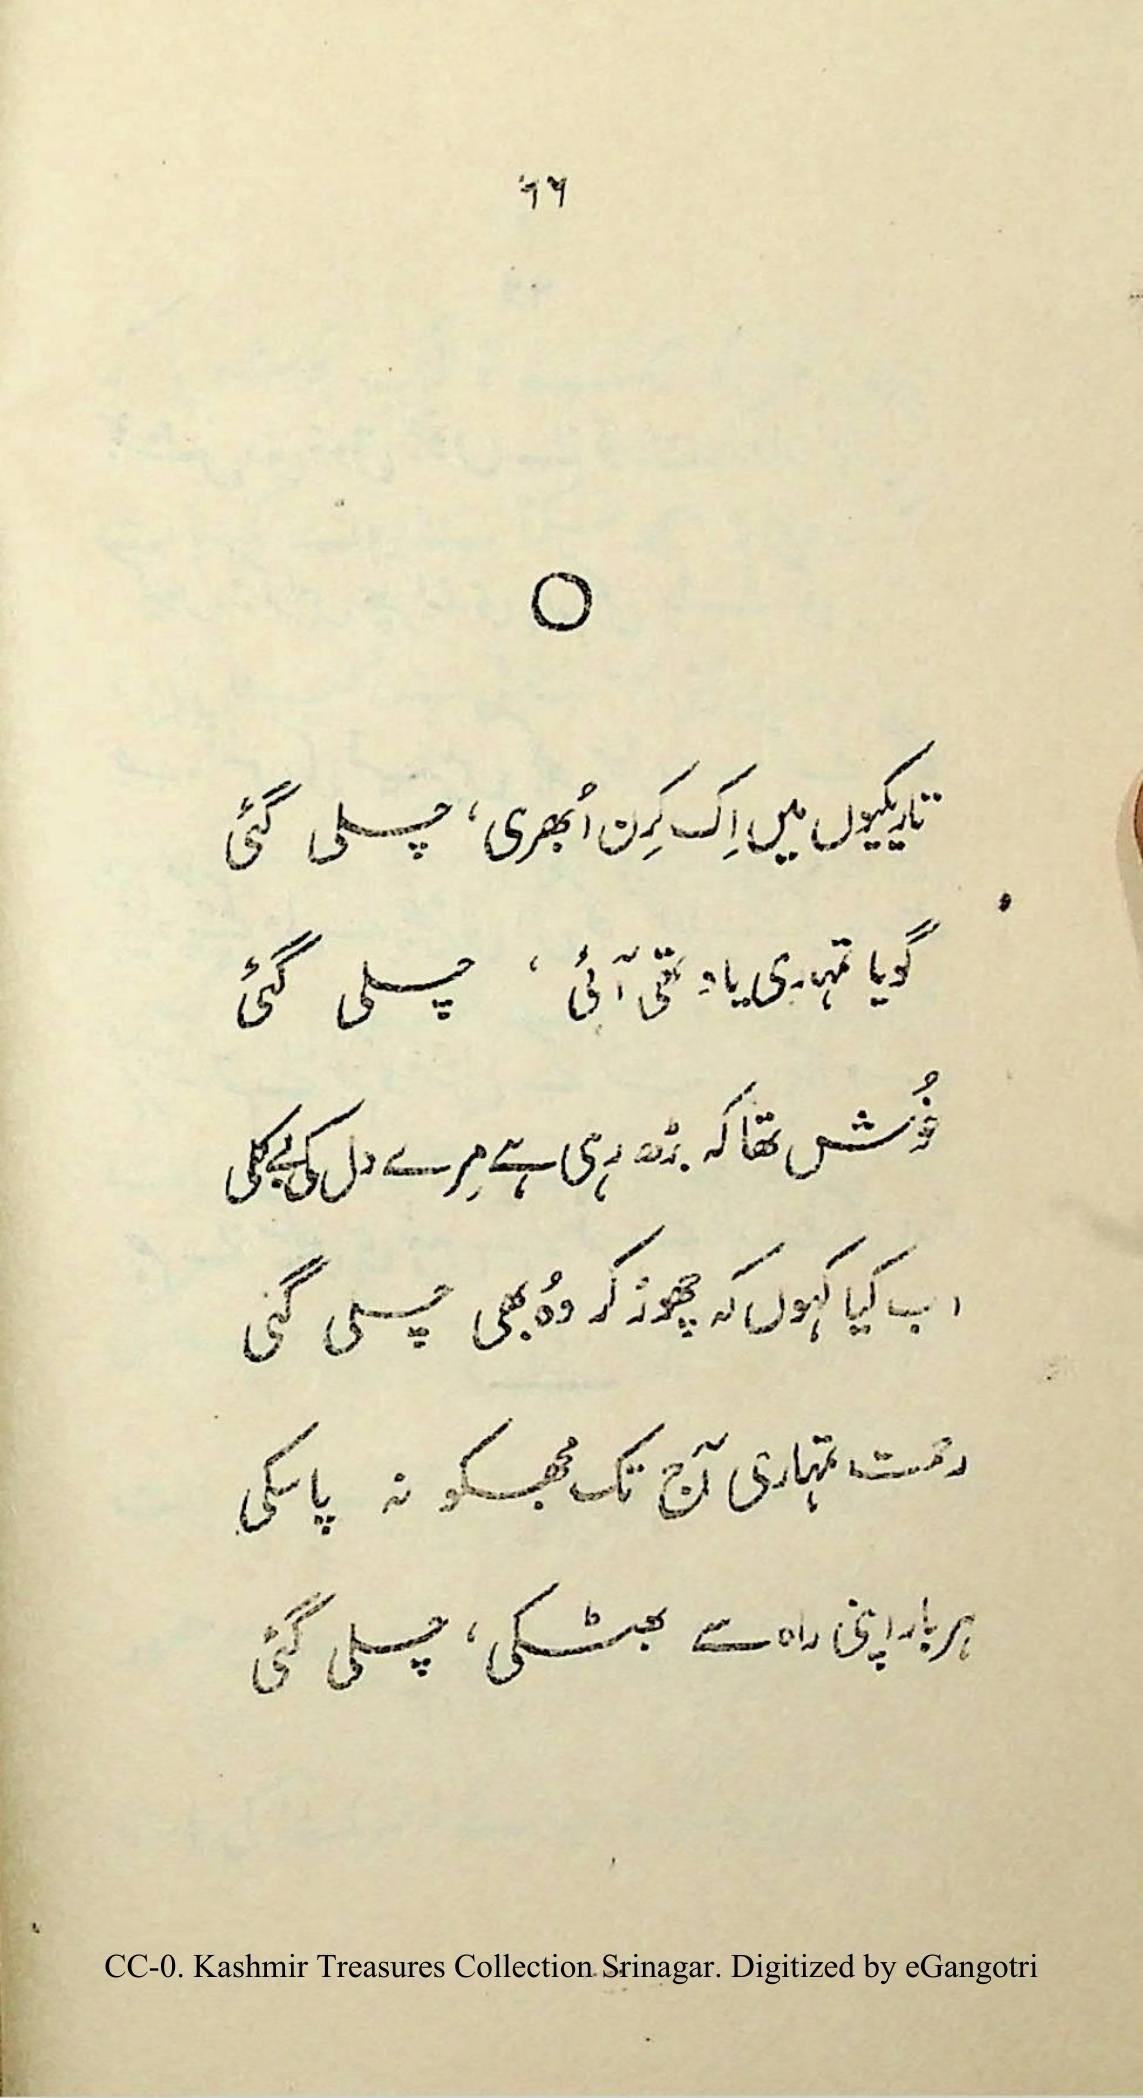 ۶۶
تاریکیوں میں اِک کرِن اُبھری، چلی گئی
گویا تمہاری یاد تھی آئی، چلی گئی
خُوش تھا کہ بڑھ رہی ہے مِرے دل کی بے کلی
اب کیا کہوں کہ چھوڑ کر وُہ بھی چلی گئی
رحمت تمہاری آج تک مجھکو نہ پا سکی
ہر بار اپنی راہ سے بھٹکی، چلی گئی
CC-0. Kashmir Treasures Collection Srinagar. Digitized by eGangotri